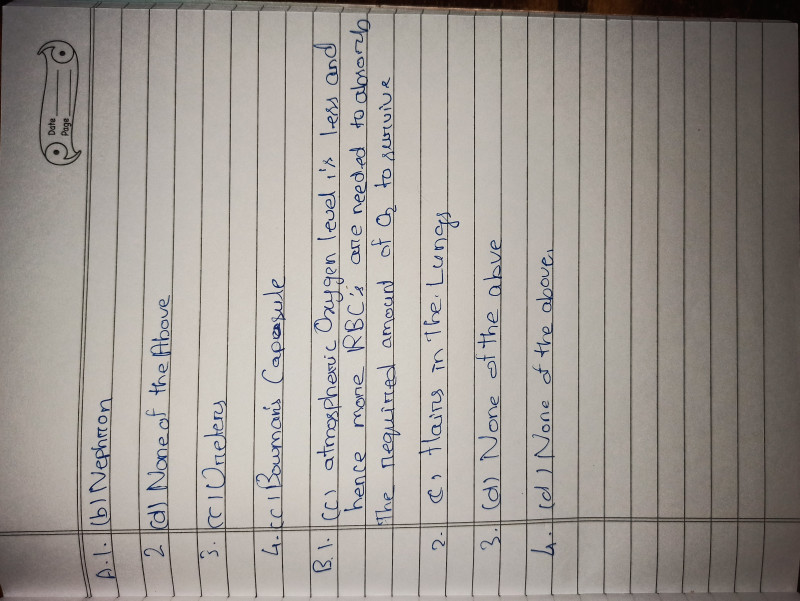 Date
Page
A.1. (b) Nephron
2 (d) None of the Above
3. (c) Ureters
4. (c) Bowman's Capsule
B.1. (c) atmospheric Oxygen level is less and
hence more RBC's are needed to absorb
The required amount of O₂ to survive
2. c) Hairs in The Lungs
3. (d) None of the abve
4. (d) None of the above.